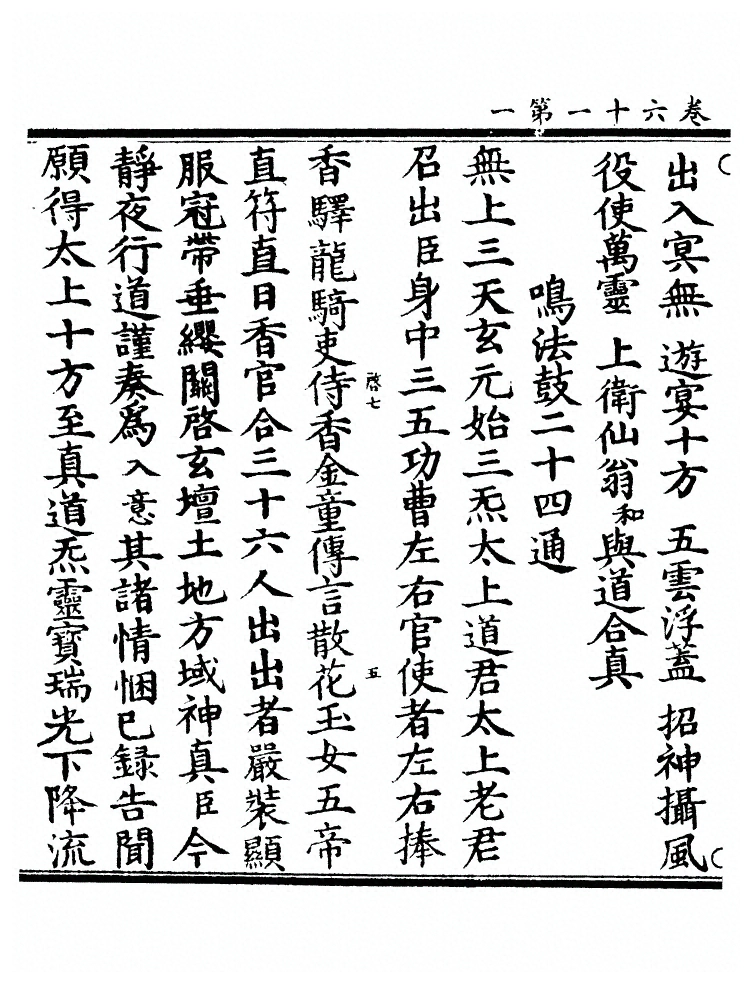 卷六十一第一
出入冥無　遊宴十方　五雲浮蓋　招神攝風
役使萬靈　上衛仙翁和與道合真
鳴法鼓二十四通
無上三天玄元始三炁太上道君太上老君
召出臣身中三五功曹左右官使者左右捧
香驛龍騎吏侍香金童傳言散花玉女五帝
啓七
五
直符直日香官合三十六人出出者嚴裝顯
服冠帶垂纓關啓玄壇土地方域神真臣今
靜夜行道謹奏爲入意其諸情悃已錄告聞
願得太上十方至真道炁靈寶瑞光下降流